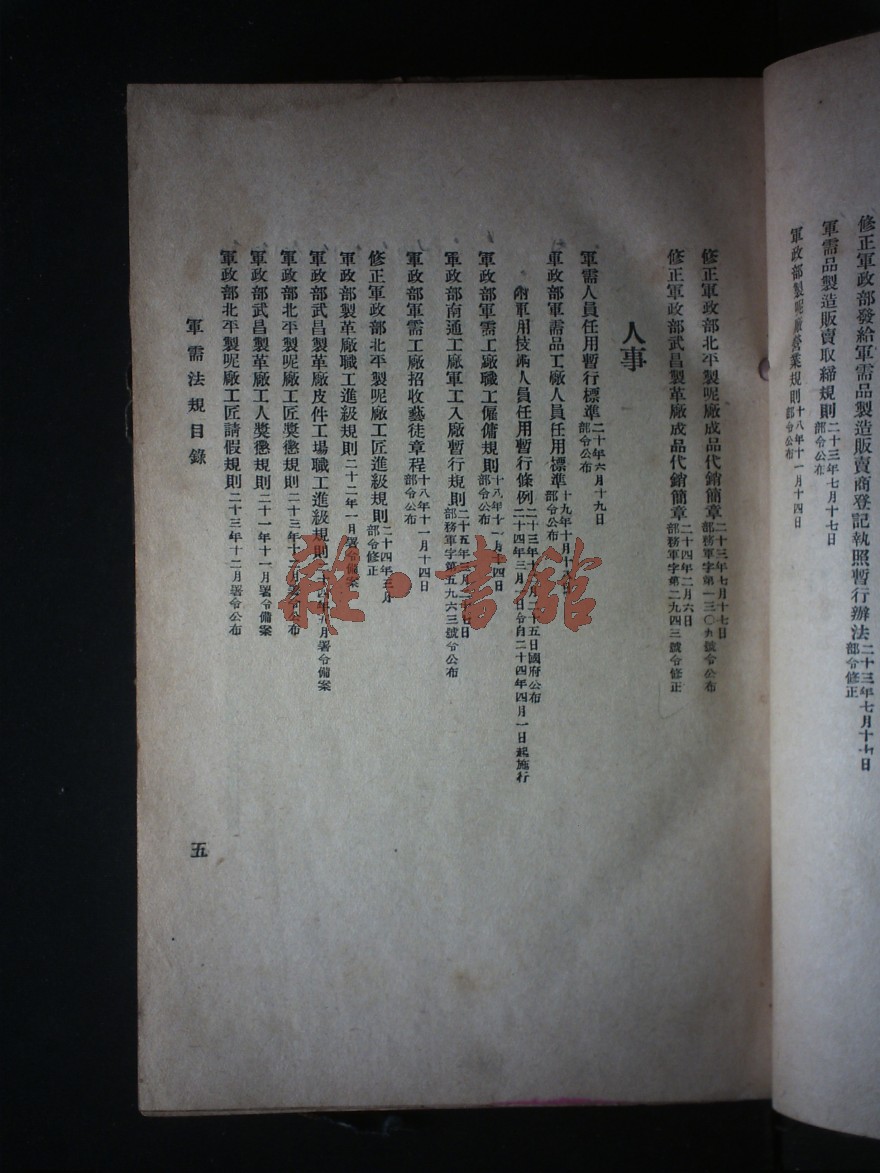 修正軍政部發給軍需品製造販賣商登記執照暫行辦法二十三年七月十七日部令修正
軍需品製造販賣取締規則二十三年七月十七日部令公布
軍政部製呢廠營業規則十八年十一月十四日部令公布
修正軍政部北平製呢廠成品代銷簡章二十三年七月十七日部務軍字第一三〇九號令公布
修正軍政部武昌製革廠成品代銷簡章二十四年二月六日部務軍字第二九四三號令修正
人事
軍需人員任用暫行標準二十年六月十九日部令公布
軍政部軍需品工廠人員任用標準十九年十月十八日部令公布
附軍用技術人員任用暫行條例二十三年 月二十五日國府公布二十四年三月 日令自二十四年四月一日起施行
軍政部軍需工廠職工僱傭規則十八年十一月十四日部令公布
軍政部南通工廠軍工入廠暫行規則二十五年 月 七日部務軍字第五九六三號令公布
軍政部軍需工廠招收藝徒章程十八年十一月十四日部令公布
修正軍政部北平製呢廠工匠進級規則二十四年三月部令修正
軍政部製革廠職工進級規則二十二年一月署令備案
軍政部武昌製革廠皮件工場職工進級規則二十四年 月署令備案
軍政部北平製呢廠工匠獎懲規則二十三年十二月署令公布
軍政部武昌製革廠工人獎懲規則二十一年十一月署令備案
軍政部北平製呢廠工匠請假規則二十三年十二月署令公布
軍需法規目錄
五
雜·書館